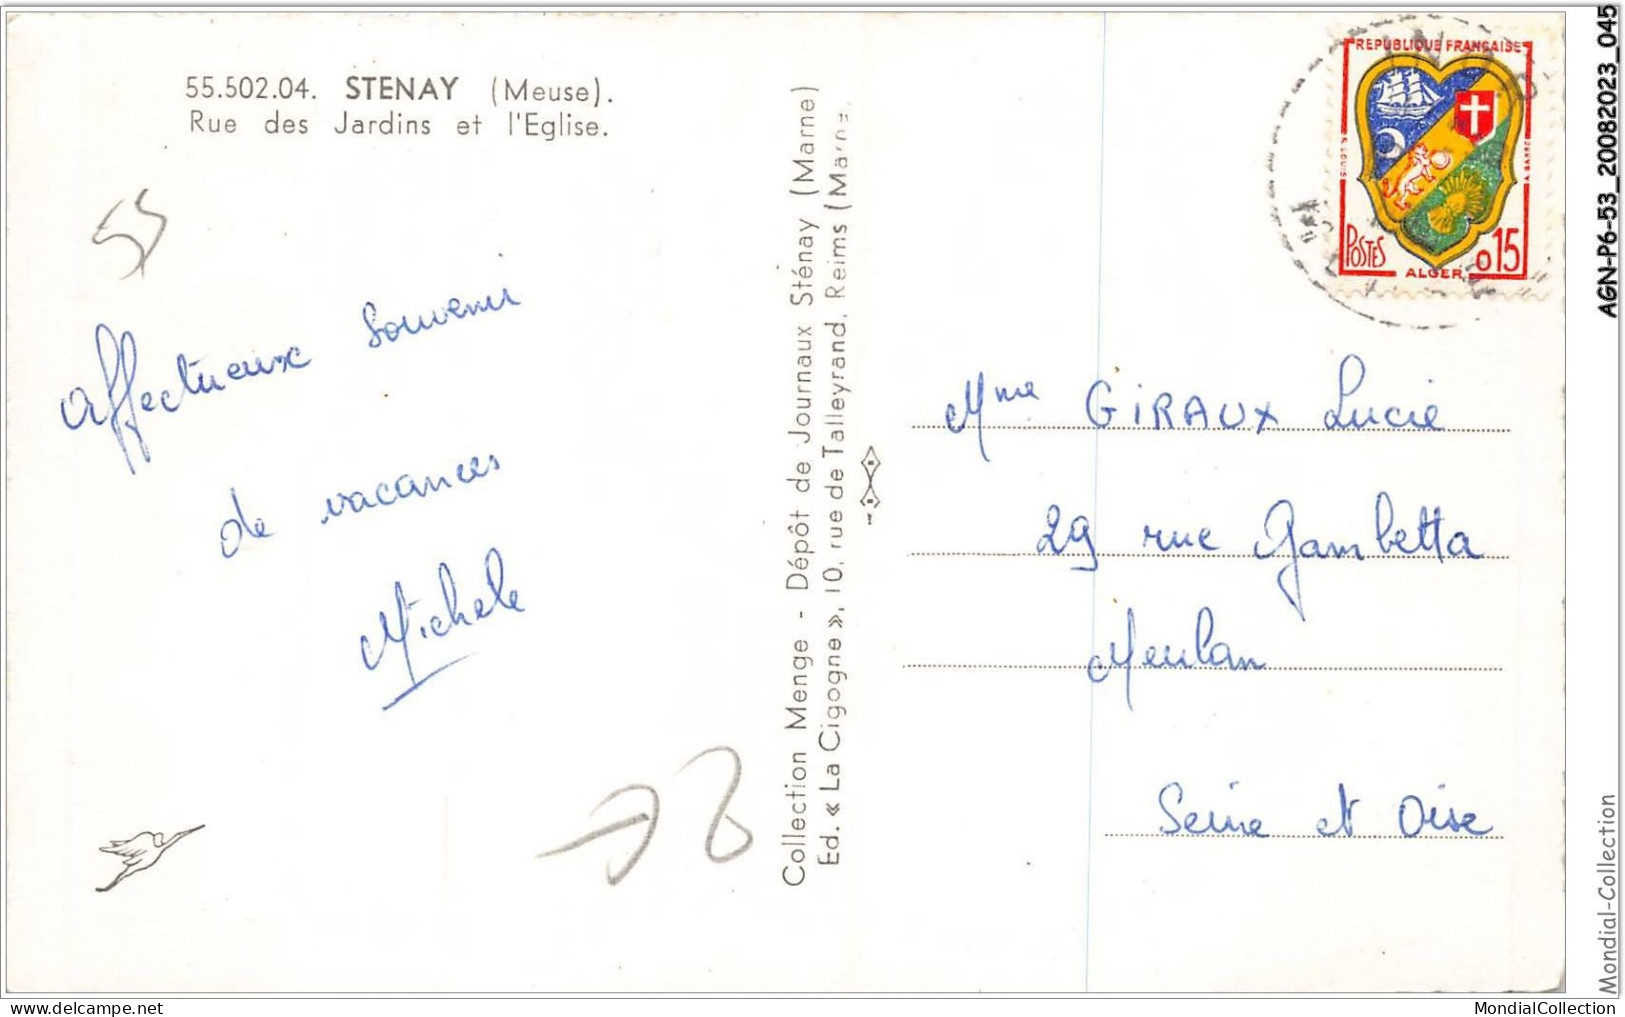 55.502.04. STENAY (Meuse).
Rue des Jardins et l'Eglise.
55
Affectueux Souvenir
de vacances
Michele
Collection Menge - Dépôt de Journaux Sténay (Marne)
Ed. « La Cigogne », 10, rue de Talleyrand, Reims (Marne
REPUBLIQUE FRANÇAISE
POSTES
ALGER
0,15
Mme GIRAUX Lucie
29 rue Gambetta
Meulan
Seine et Oise
AGN-P6-53_20082023_045
Mondial-Collection
https://www.delcampe.net
MondialCollection